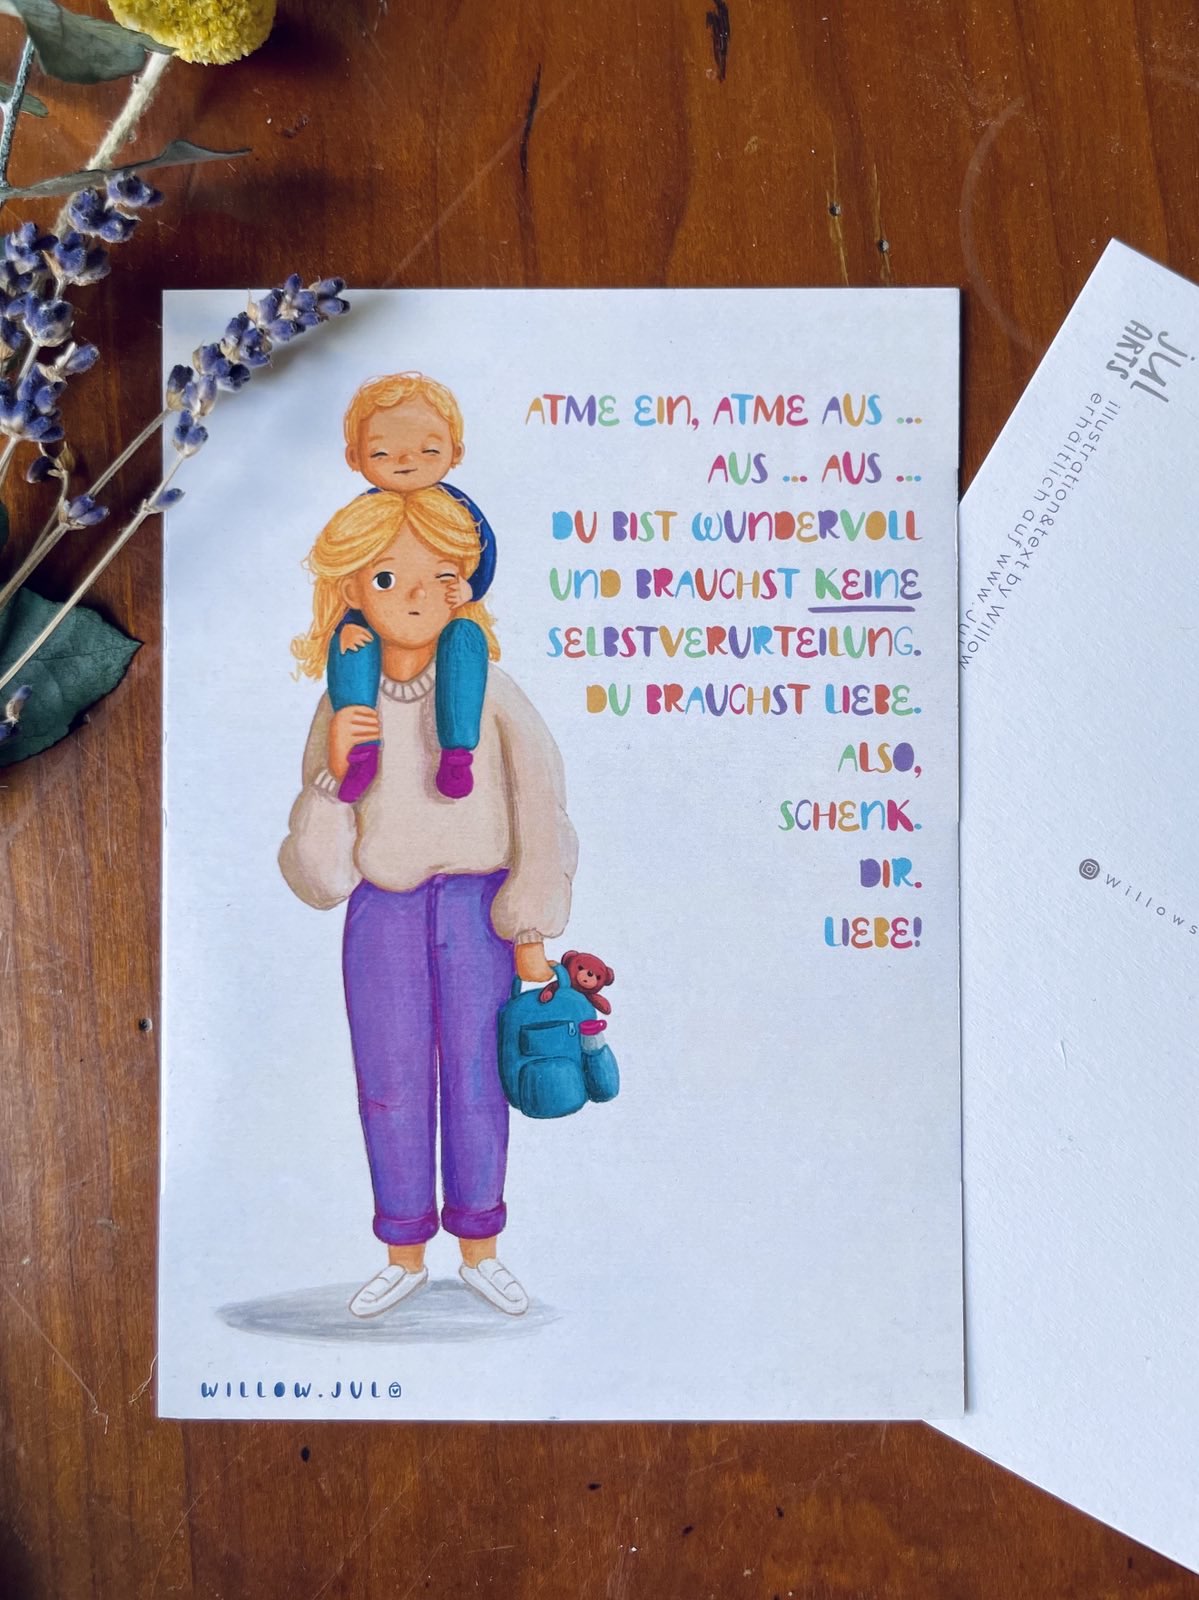 ATME EIN, ATME AUS ...
AUS ... AUS ...
DU BIST WUNDERVOLL
UND BRAUCHST KEINE
SELBSTVERURTEILUNG.
DU BRAUCHST LIEBE.
ALSO,
SCHENK.
DIR.
LIEBE!
WILLOW.JUL
jul
ARTS
illustration&text by Willow
erhältlich auf www.Jul
willows